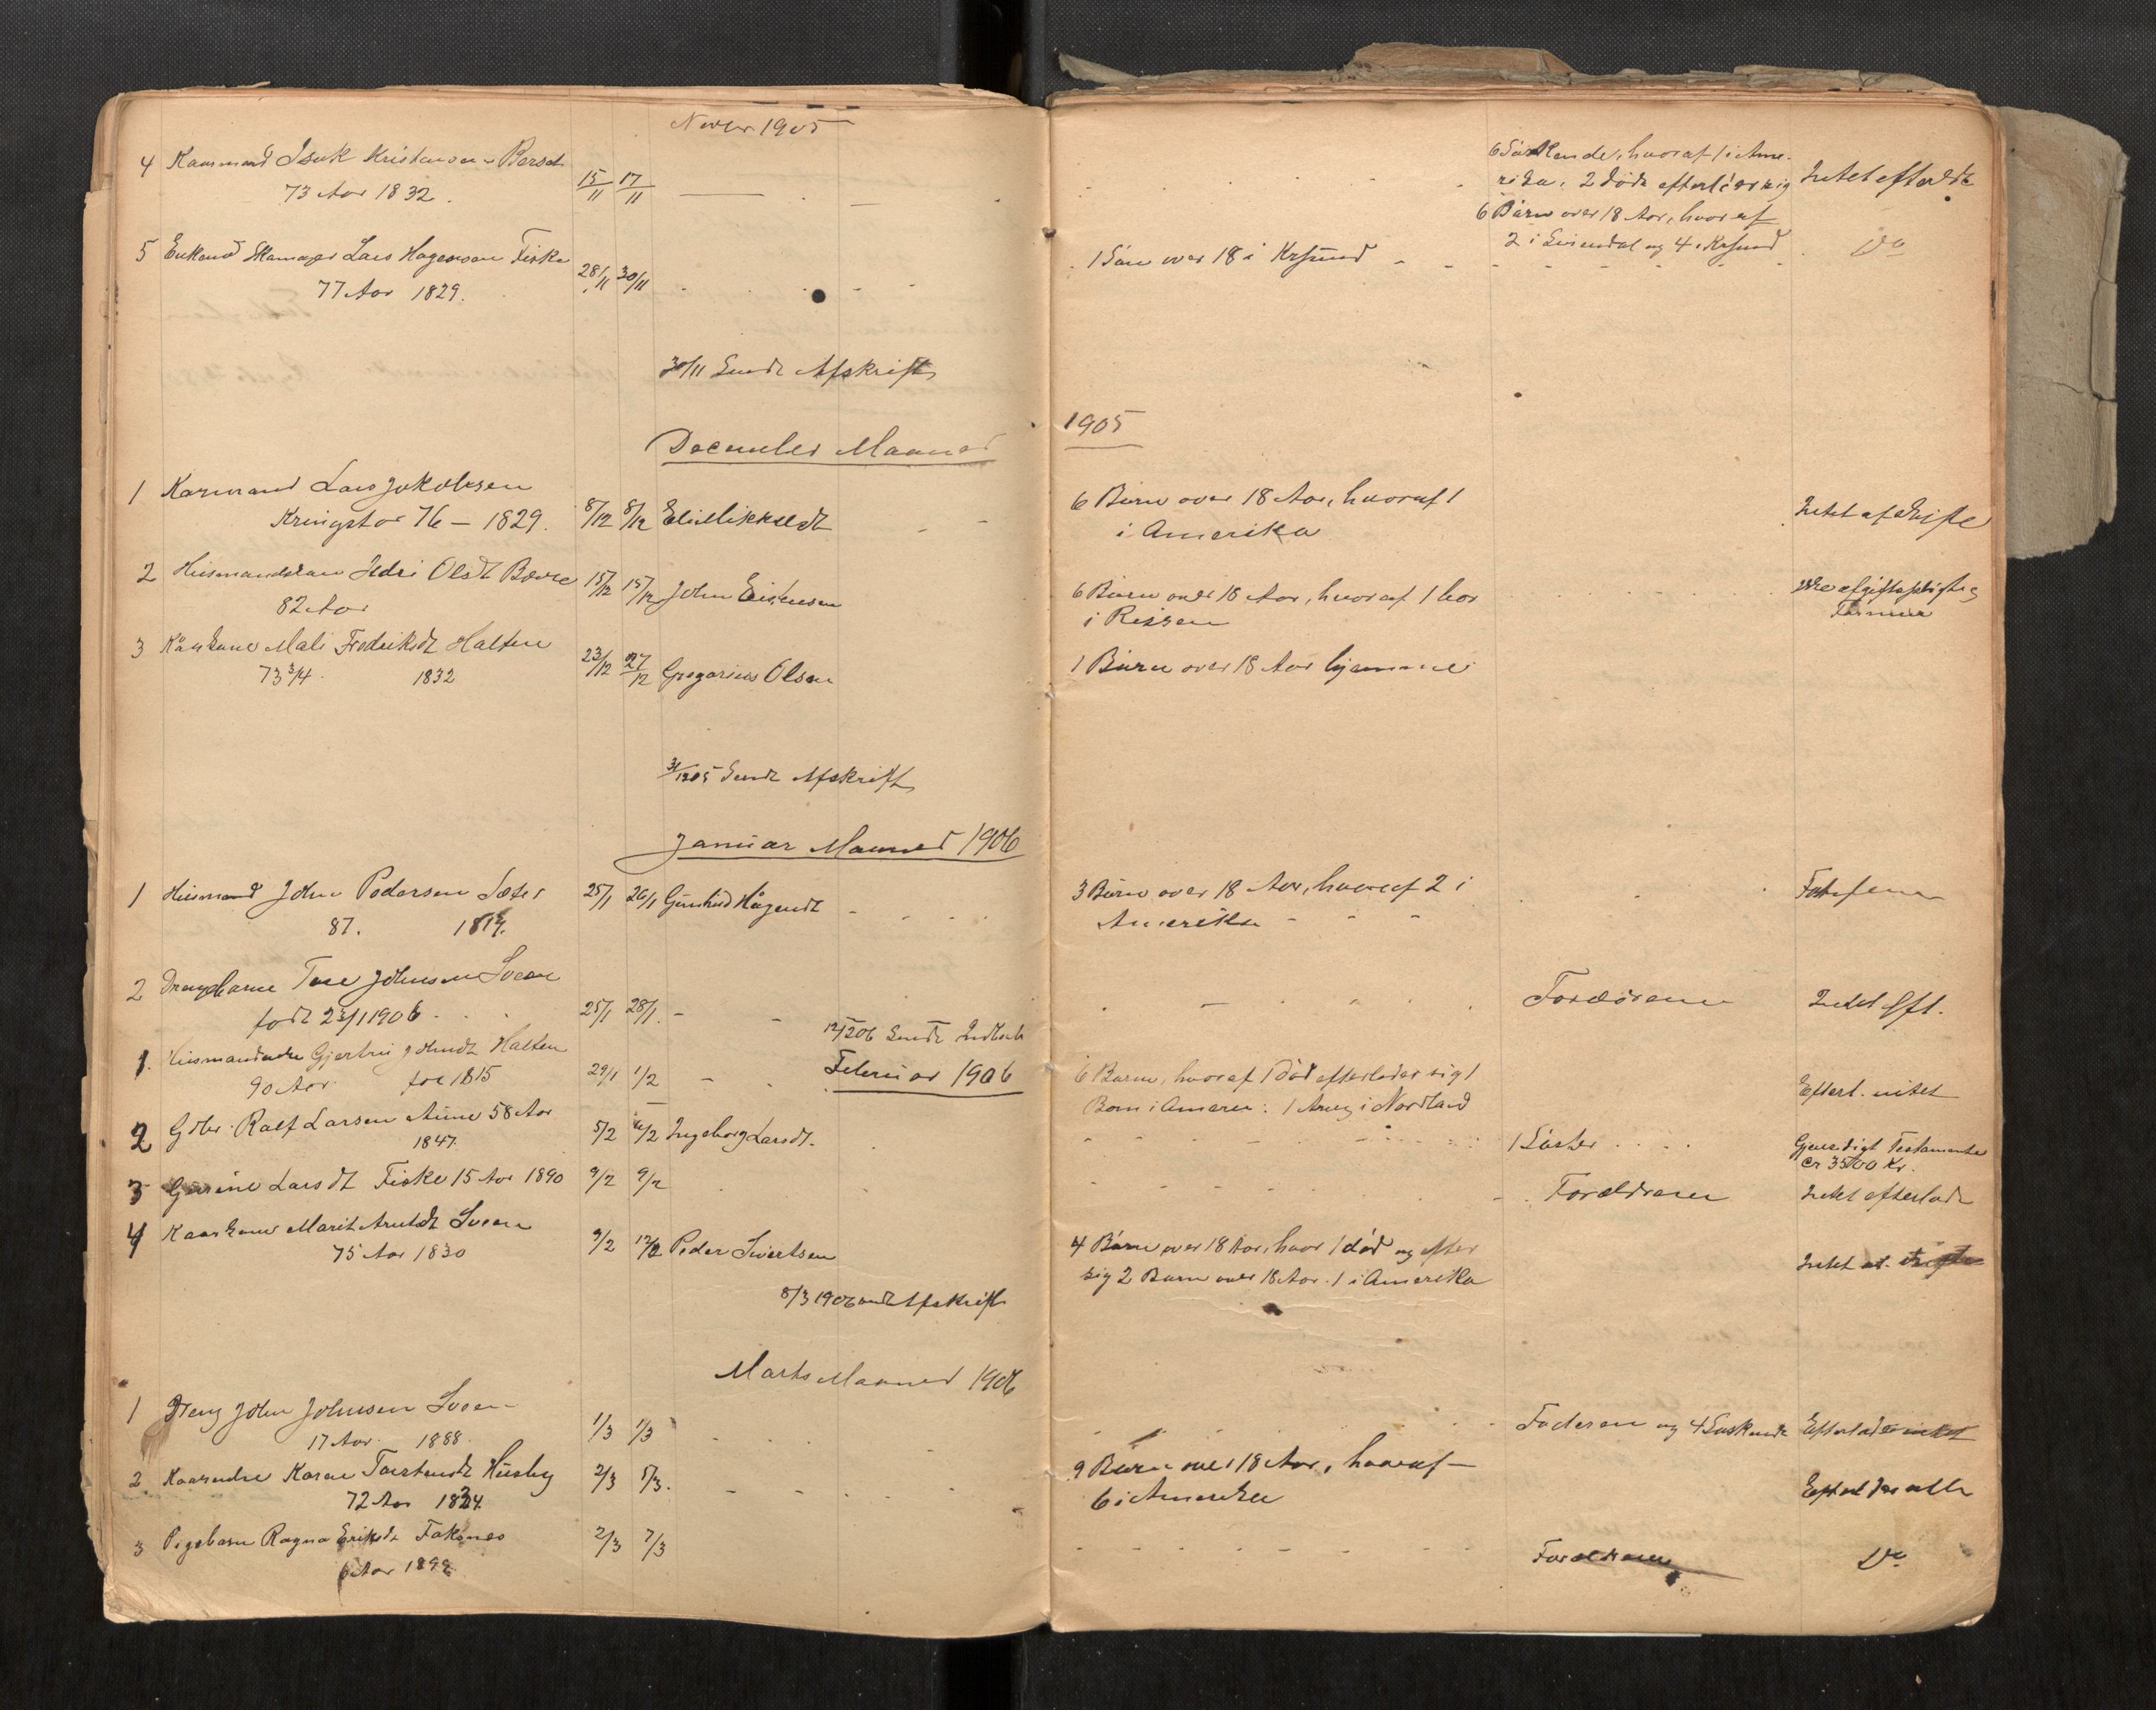 Novbr 1905
4 Kaarmand Isak Kristensen Berset 15/11 17/11
73 Aar 1832.
6 Søskende, hvoraf 1 i Ame-
rika, 2 døde efterl. sig
Intet efterladt
5 Enkemd Lars Hagensen Fiske 28/11 30/11
77 Aar 1829.
1 Søn over 18 i Krsund
6 Børn over 18 Aar, hvoraf
2 i og 4 i Krsund
Do
30/11 Sendt Afskrift
December Maaned
1905
1 Karmand Lars Jakobsen
Kringstor 76 - 1829. 8/12 8/12 Eli Mikkelsdt
6 Børn over 18 Aar, hvoraf 1
i Amerika
Intet at skifte
2 Husmandskone Olsdt Bovre 15/12 15/12 John
82 Aar
6 Børn over 18 Aar, hvoraf 1 bor
i Rissen
3 Kaarkone Mali Fredriksdt Halten 23/12 27/12 Gregorius Olsen
73 3/4 1832
1 Børn over 18 Aar hjemme
31/12 05 Sendt Afskrift
Januar Maaned 1906
1 Husmand John Pedersen Sæter 25/1 26/1 Gunhild Hågensdt
87.
3 Børn over 18 Aar, hvoraf 2 i
Amerika
2 Drengebarn Tore Johnsen Sveen
født 23/1 1906 25/1 28/1
Forældrene
Intet Eft.
12/2 06 Sendt
Februar 1906
1. Gjertru Johnsdt Halten
90 Aar 1815 29/1 1/2
6 Børn, hvoraf 1 død efterlader sig 1
Barn i Amerca: 1 i Nordland
Efterl. intet
2 Gdbr. Rolf Larsen Aune 58 Aar
1847. 5/2 Ingeborg Larsdt.
1 Søster
Gjensidigt Testamente
Cr 3500 Kr.
3 Gurine Larsdt Fiske 15 Aar 1890 9/2 9/2
Forældrene
Intet efterladt
4 Kaarkone Marit Arntsdt Sveen
75 Aar 1830 9/2 12/2 Peder Sivertsen
4 Børn over 18 Aar, hvor 1 død og efter
sig 2 Barn over 18 Aar. 1 i Amerika
Intet at skifte
8/3 1906 sendt Afskrift
Marts Maaned 1906
1 Dreng John Johnsen Sveen
17 Aar. 1888. 1/3 1/3
Faderen og 4 Søskende
Efterlader intet
2. Karen Torstensdt Husby 2/3 5/3.
72 Aar 1834
9 Børn over 18 Aar, hvoraf
6 i Amerika
3 Pigebarn Ragna Eriksdt Faksnes 2/3 7/3
6 Aar 1899
Forældrene
Do